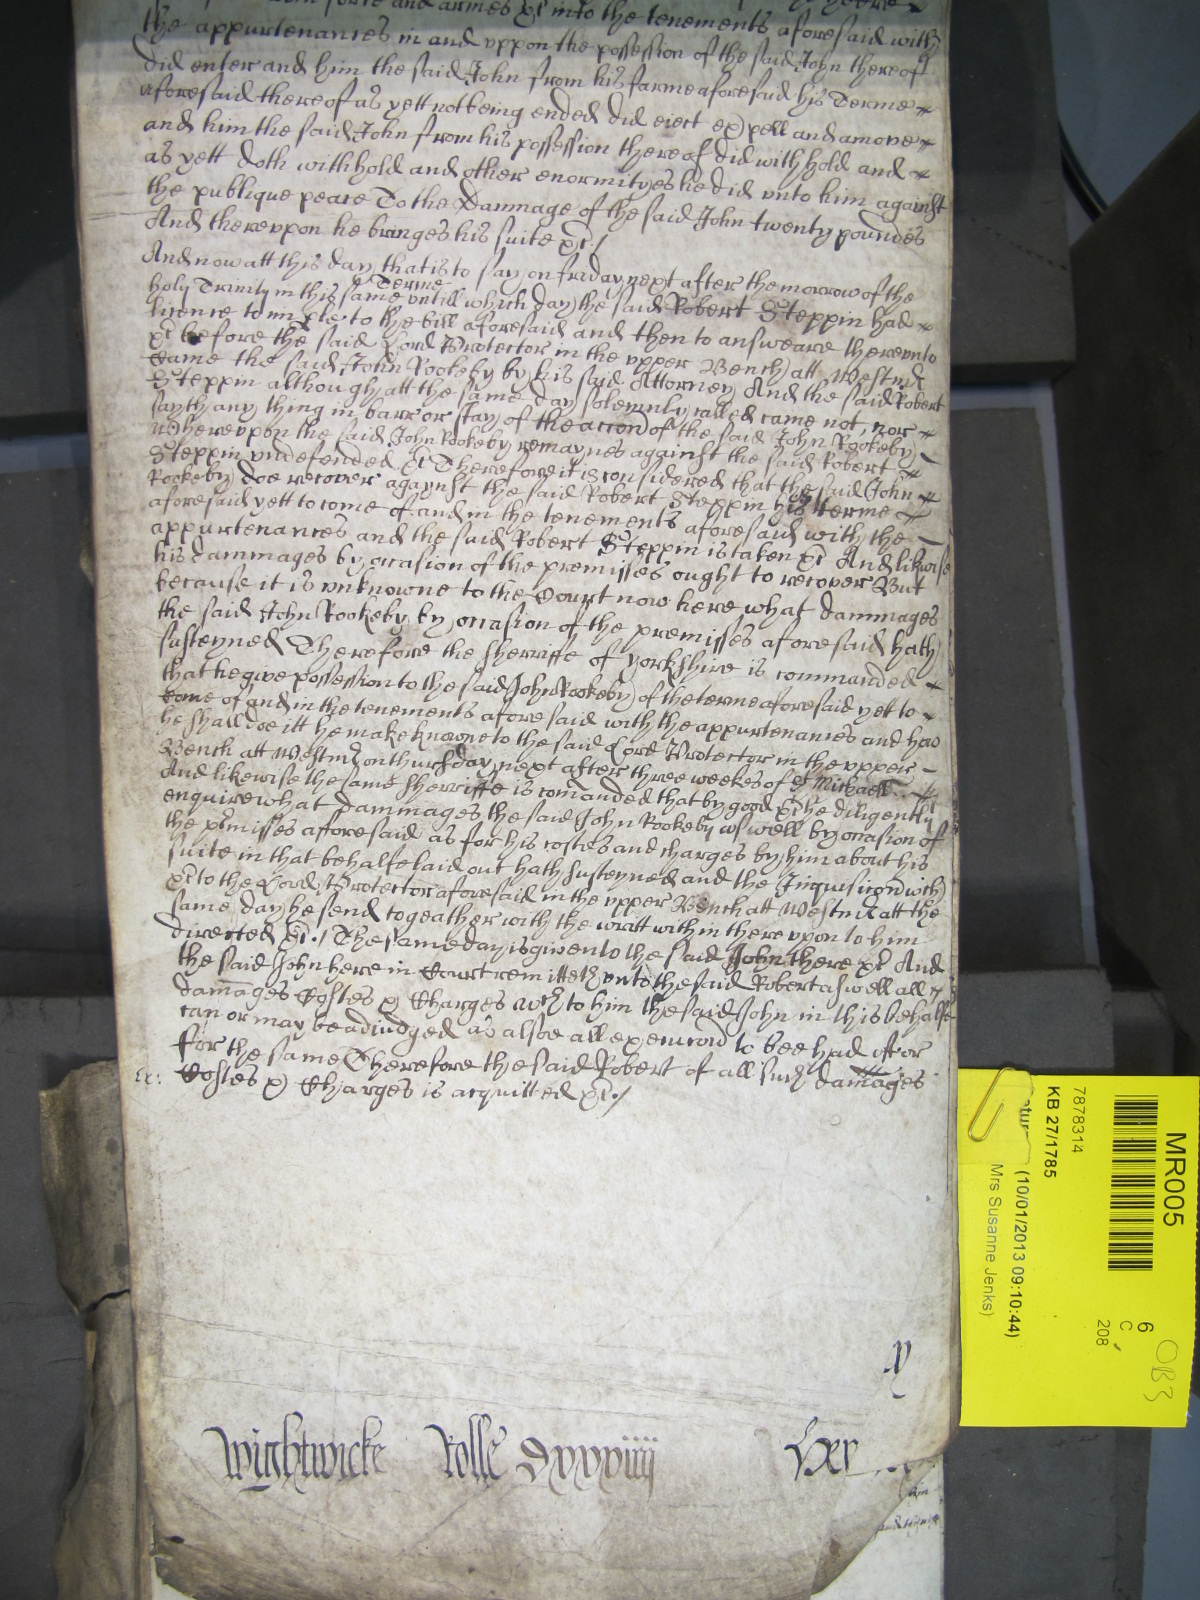 force and armes &c into the tenements aforesaid with
the appurtenances in and vppon the possession of the said John thereof
did enter and him the said John from his farme aforesaid his Terme
aforesaid thereof as yett not being ended did eiect expell and amove
and him the said John from his possession thereof did withhold and
as yett doth withhold and other enormityes he did vnto him against
the publique peace To the Dammage of the said John twenty poundes
And therevpon he bringes his suite &c /
And now att this day that is to say on friday next after the morrow of the
holy Trinity in this same Terme vntill which day the said Robert Steppin had
licence to imple to the bill aforesaid and then to answeare therevnto
&c before the said Lord Protector in the vpper Bench att Westmr
Came the said John Rookeby by his said Attorney And the said Robert
Steppin although att the same day solemnly called came not, nor
sayth any thing in barr or stay of the accon of the said John Rookeby
Wherevpon the said John Rookeby remaynes against the said Robert
Steppin vndefended &c Therefore it is considered that the said John
Rookeby doe recover agaynst the said Robert Steppin his terme
aforesaid yett to come of and in the tenements aforesaid with the
appurtenances and the said Robert Steppin is taken &c And likwise
his dammages by occasion of the premisses ought to recover But
because it is vnknowne to the Court now here what dammages
the said John Rookeby by occasion of the premisses aforesaid hath
susteyned Therefore the Sherriffe of yorkshire is commanded
that he give possession to the said John Rookeby of the terme aforesaid yett to
Come of and in the tenements aforesaid with the appurtenances and how
he shall doe itt he make knowne to the said Lord Protector in the vpper
Bench att Westmr on thursday next after three weekes of St Michaell
And likewise the same Sherriffe is comanded that by good &c he diligently
enquire what dammages the said John Rookeby aswell by occasion of
the prmisses afforesaid as for his costes and charges by him about his
suite in that behalfe laid out hath susteyned and the Inquisicon with
&c to the Lord Protector aforesaid in the vpper Bench att Westmr att the
same day he send togeather with the writt within therevpon to him
directed &c / The same day is given to the said John there &c And
the said John here in Court remitteth vnto the said Robert aswell all
damages Costes & Charges wch to him the said John in this behalfe
can or may be adiudged as alsoe all execucon to bee had of or
for the same Therefore the said Robert of all such damages
Ex: Costes & Charges is acquitted &c /
Wightwicke Rolle dxxxiiij
MR005
6
C
208
OB3
7878314
KB 27/1785
(10/01/2013 09:10:44)
Mrs Susanne Jenks)